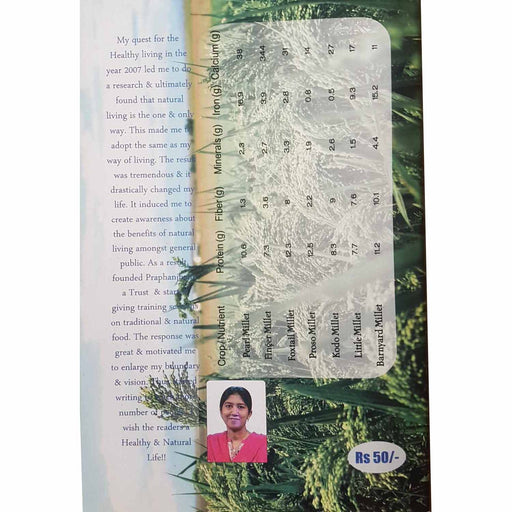 My quest for the
Healthy living in the
year 2007 led me to do
a research & ultimately
found that natural
living is the one & only
way. This made me to
adopt the same as my
way of living. The resu
was tremendous & it
drastically changed my
life. It induced me to
create awareness about
the benefits of natural
living amongst general
public. As a resu
founded Praphan
a Trust & star
giving training se
on traditional & natural
food. The response was
great & motivated me
to enlarge my boundary
& vision.
writing
number of
wish the readers a
Healthy & Natural
Life!!
Crop/Nutrient Protein(g) Fiber(g) Minerals(g) Iron(g) Calcium(g)
Pearl Millet 10.6 1.3 2.3 16.9 38
Finger Millet 7.3 3.6 2.7 3.9 344
Foxtail Millet 12.3 8 3.3 2.8 31
Proso Millet 12.5 2.2 1.9 0.8 14
Kodo Millet 8.3 9 2.6 0.5 27
Little Millet 7.7 7.6 1.5 9.3 17
Barnyard Millet 11.2 10.1 4.4 15.2 11
Rs 50/-